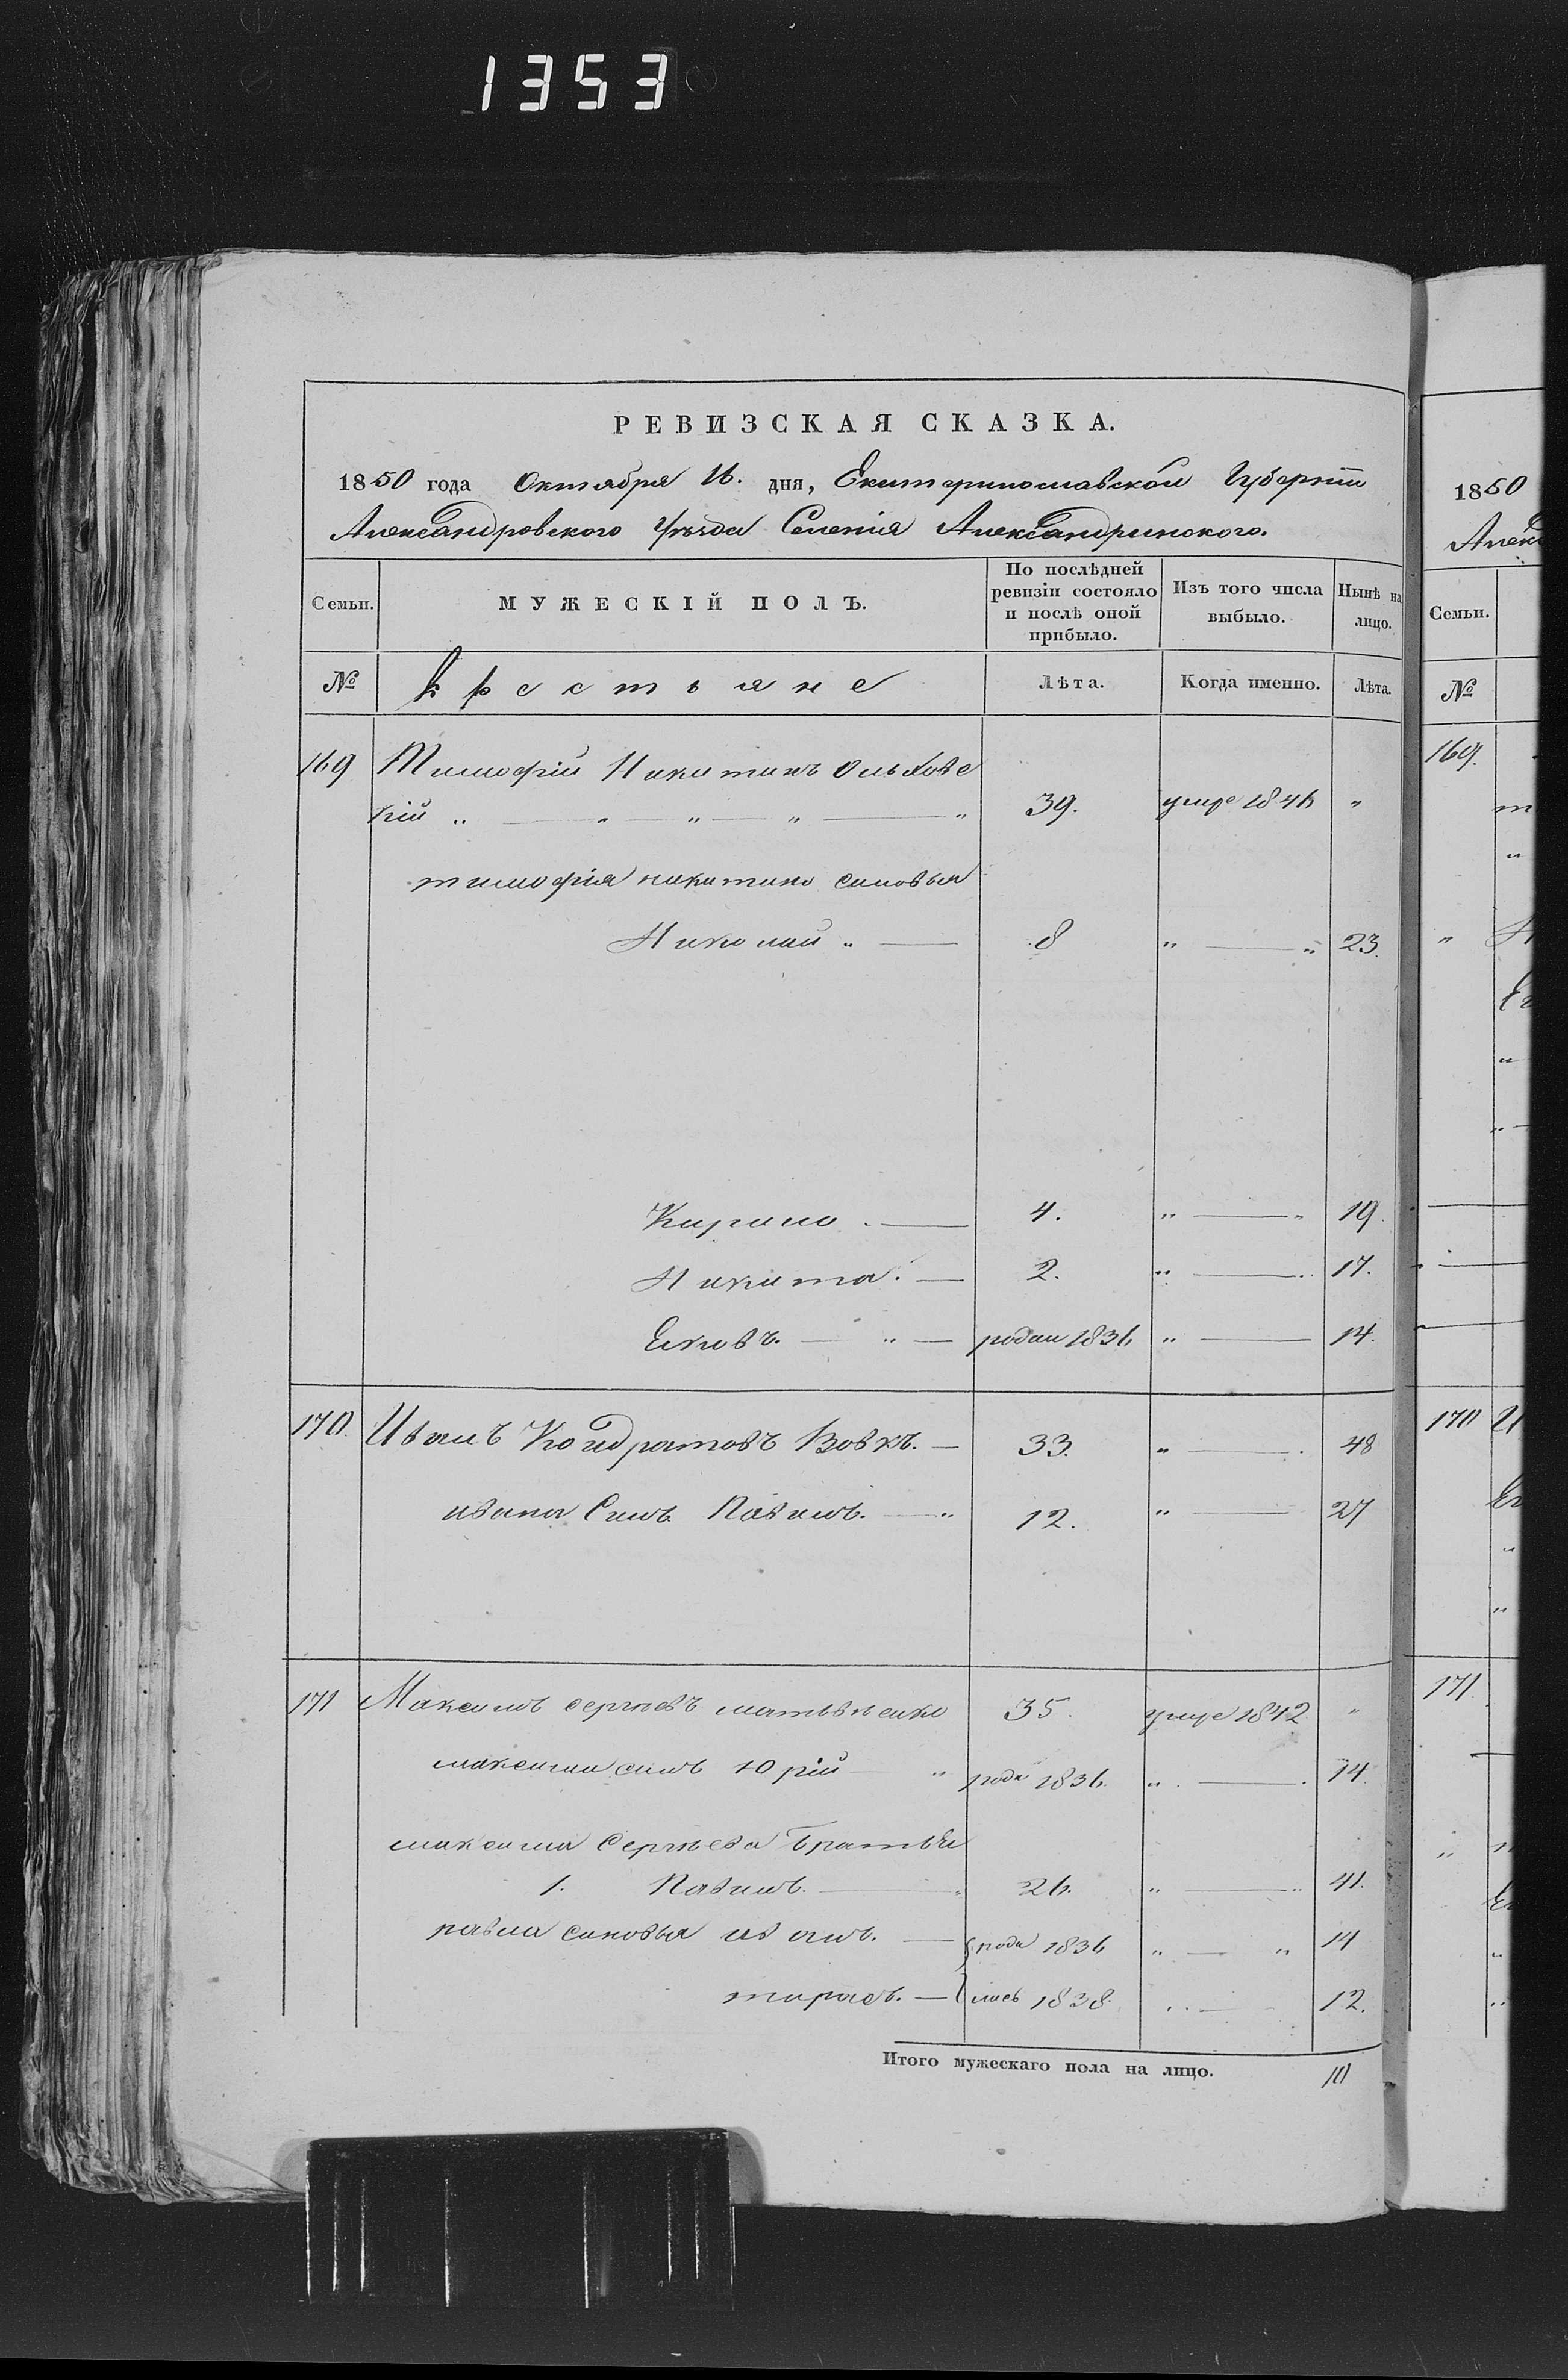 1353
РЕВИЗСКАЯ СКАЗКА.
1850 года Октября 16. дня, Екатеринославской Губерніи
Александровского Уѣзда Селенія Александринского.
Семьи. МУЖЕСКІЙ ПОЛЪ. По послѣдней ревизіи состояло и послѣ оной прибыло. Изъ того числа выбыло. Нынѣ на лицо.
№ Крестьяне Лѣта. Когда именно. Лѣта.
169 Тимофій Никитинъ Ольховс
кій „ — „ — „ — „ — „ 39. умре 1846 „
тимофія никитина синовья
Николай „ — 8 „ — „ 23.
Кирило . — 4. „ — „ 19.
Никита . — 2. „ — 17.
Яковъ. — „ — родил 1836 „ — 14.
170. Иванъ Кондратовъ Вовкъ. — 33. „ — 48
ивана Синъ Павилъ. — „ 12. „ — 27
171 Максимъ сергѣевъ матвѣенко 35. умре 1842 „
максима синъ Юрій — „ роди 1836. „ — 14.
максима Сергѣева Братья
1. Павилъ. — „ 26. „ — 41.
павла синовья иванъ. — роди 1836 „ — „ 14
тарасъ. — лись 1838. „ — 12.
Итого мужескаго пола на лицо. 10
1850
Алекс
Семьи.
№
169.
170 И
171.